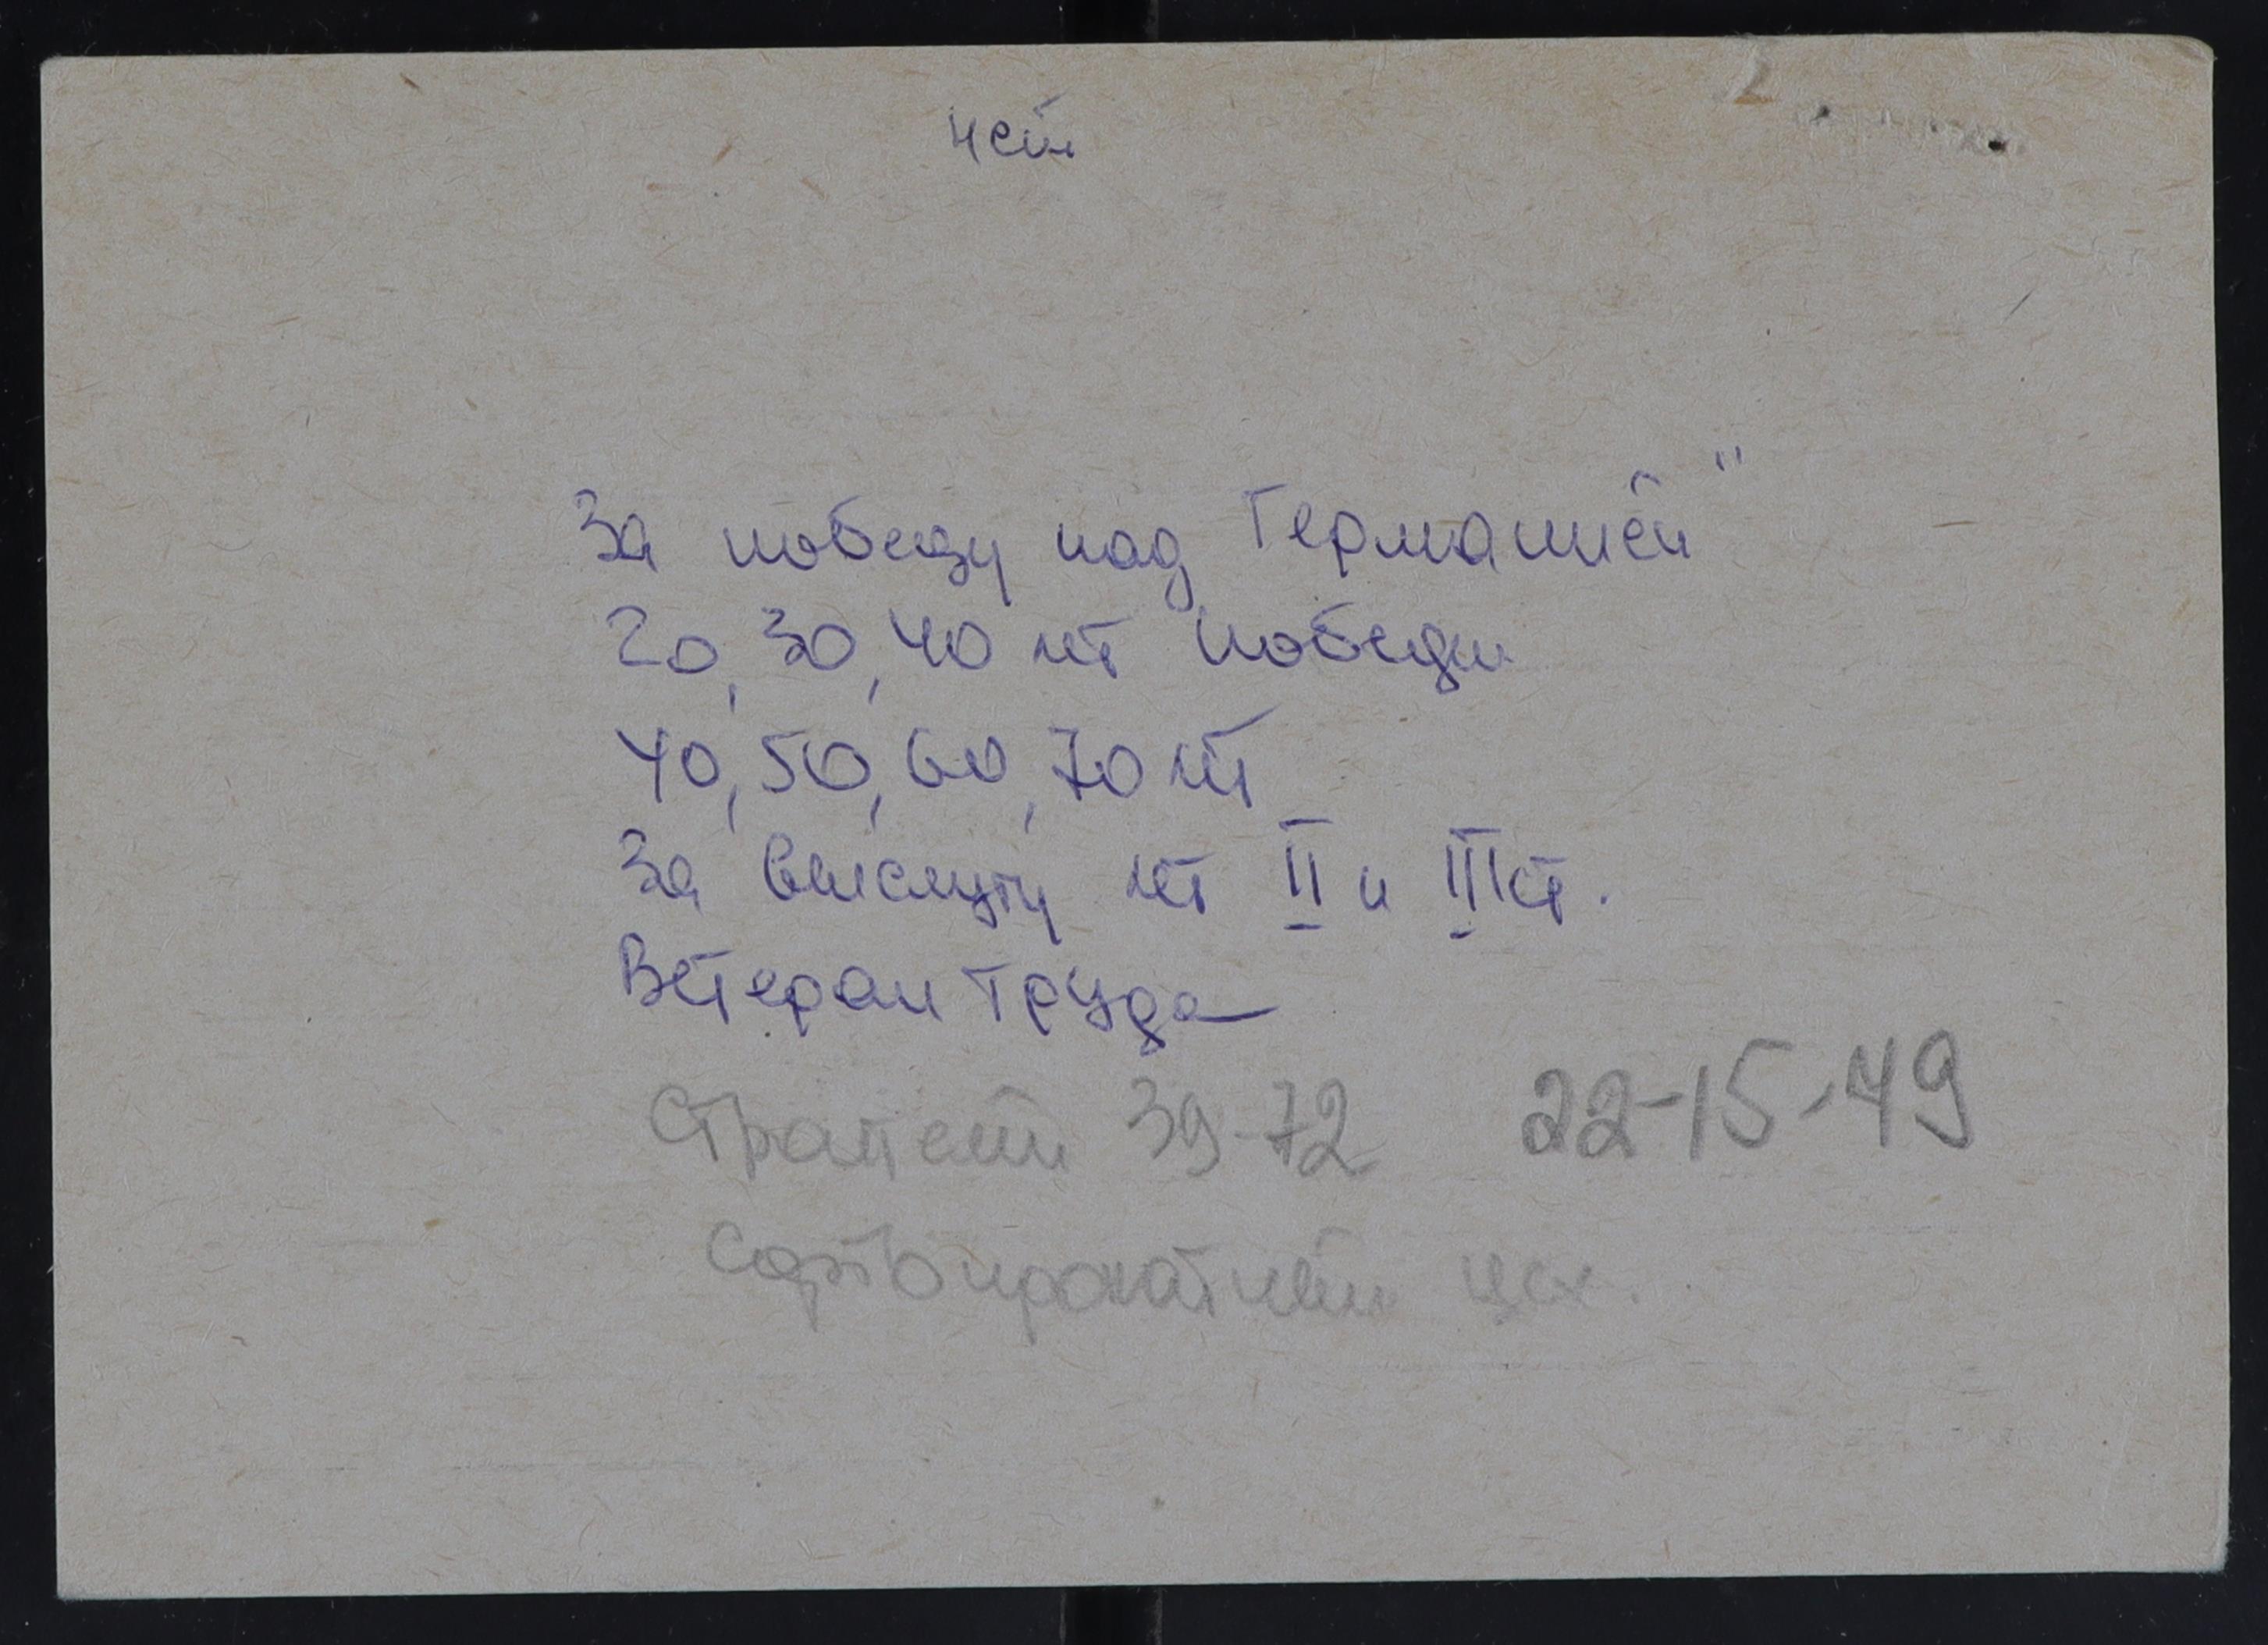 нет
За победу над Германией"
20, 30, 40 лет Победы
40, 50, 60, 70 лет
За выслугу лет II и III ст.
Ветеран труда
39-72 22-15-49
Сортопрокатный цех.